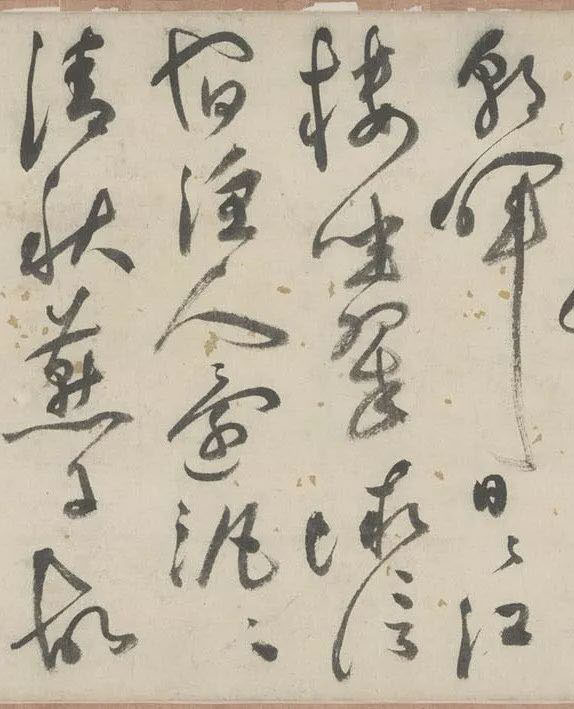 朝暉日〻江
樓坐翠微信
宿漁人還汎〻
清秋燕子故